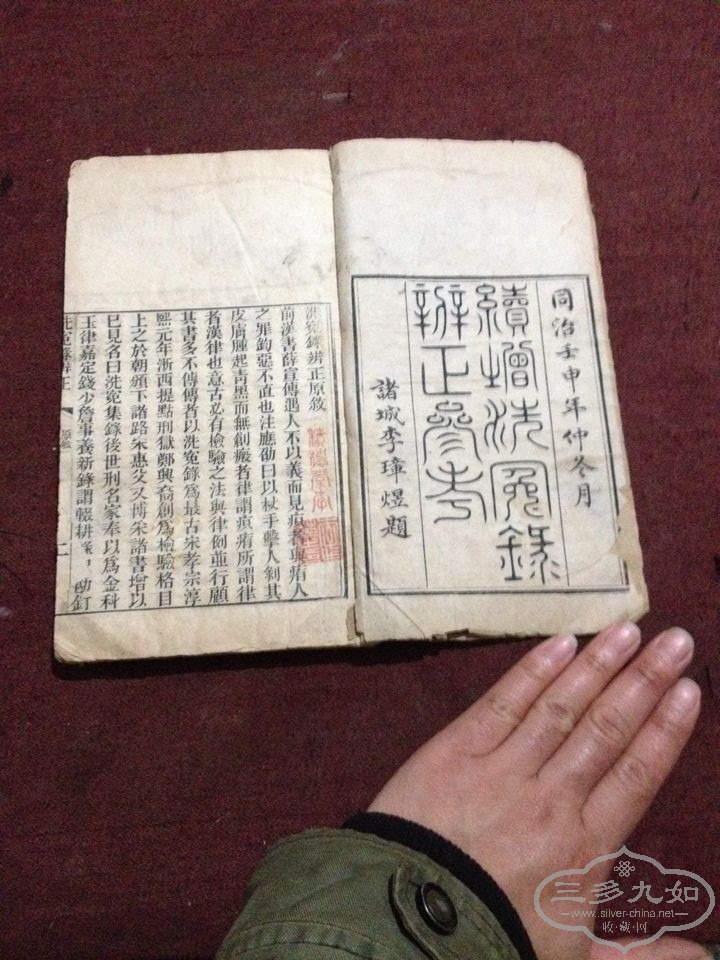 同治壬申年仲冬月
續增洗冤錄
辨正參考
諸城李璋煜題
洗冤錄辨正原敘
前漢書薛宣傳遇人不以義而見疻者與痏人
之罪鈞惡不直也注應劭曰以杖手擊人剝其
皮膚腫起青黑而無創瘢者律謂疻痏所謂律
者漢律也意古必有檢驗之法與律例並行顧
其書多不傳傳者以洗冤錄為最古宋孝宗淳
熙元年浙西提點刑獄鄭興裔創為檢驗格目
上之於朝頒下諸路宋惠父又博采諸書增以
已見名曰洗冤集錄後世刑名家奉以為金科
玉律嘉定錢少詹事養新錄謂輟耕
洗冤錄辨正
原敘
三多九如
www.silver-china.net
收·藏·网